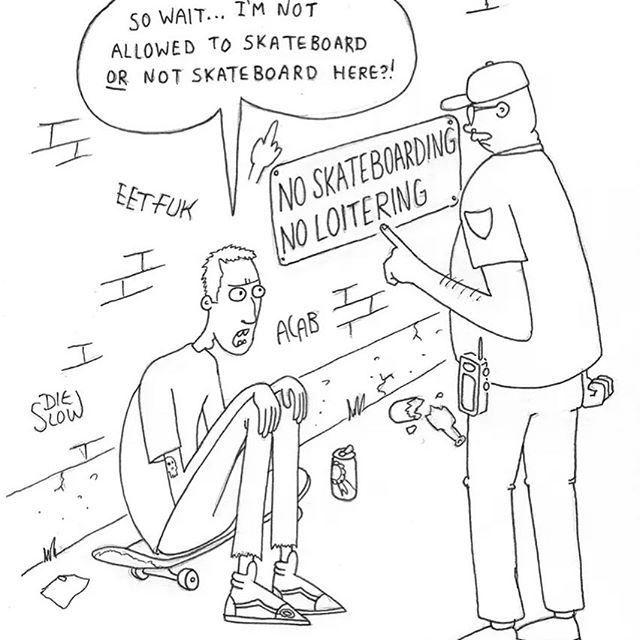 SO WAIT... I'M NOT
ALLOWED TO SKATEBOARD
OR NOT SKATEBOARD HERE?!
NO SKATEBOARDING
NO LOITERING
EETFUK
ACAB
DIE
SLOW